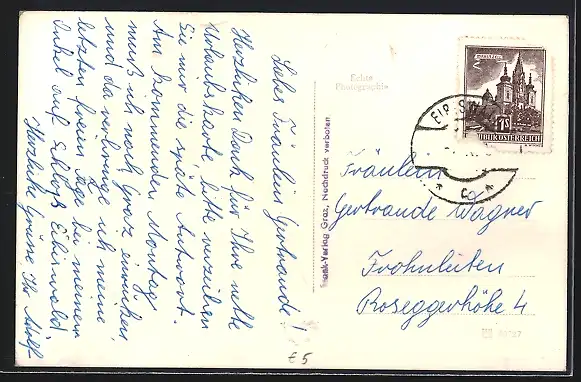 Liebes Fräulein Gertraude!
Herzlichen Dank für Ihre nette
Urlaubskarte, bitte verzeihen
Sie mir die späte Antwort.
Am kommenden Montag
muß ich nach Graz einrücken
und da verbringe ich meine
letzten freien Tage bei meinem
Onkel auf Schloß Eibiswald
Herzliche Grüsse Ihr Adolf
Echte
Photographie
-Verlag Graz, Nachdruck verboten
MARIAZELL
1 S
REPUBLIK ÖSTERREICH
EIB
Fräulein
Gertraude Wagner
Frohnleiten
Roseggerhöhe 4
€5